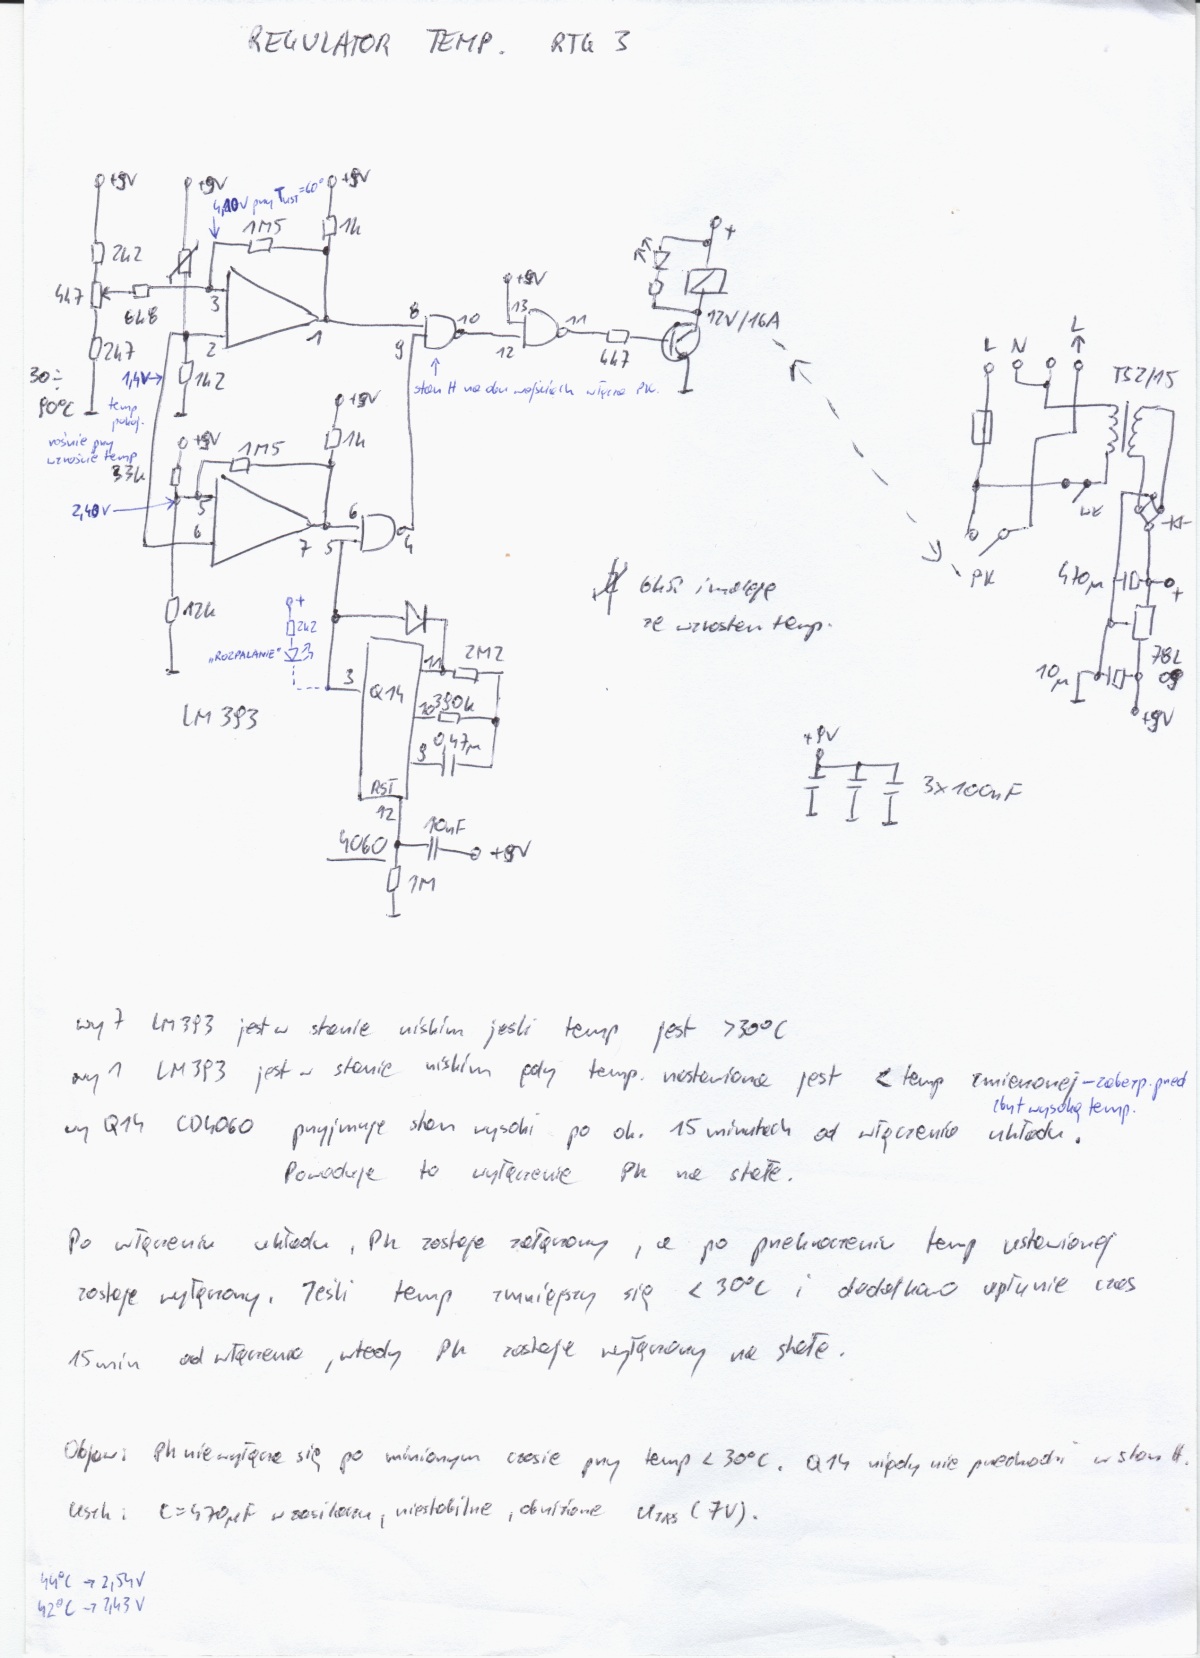 REGULATOR TEMP. RTG 3
+9V
+9V
4,10V przy Tust=60°
+9V
2k2
1M5
1k
4k7
6k8
3
2
1
2k7
1k2
30÷
90°C
1,4V
temp
pokoj.
rośnie przy
wzroście temp
8
9
10
+9V
13
12
11
4k7
+
12V/16A
stan H na obu wejściach włącza PK.
+9V
1k
+9V
1M5
33k
2,40V
5
6
7
6
5
4
12k
+
2k2
"ROZPALANIE"
LM 393
3
Q14
11
2M2
10
390k
9
0,47µ
RST
12
4060
10nF
+9V
1M
L N L
TSZ/15
WŁ
PK
470µ
+
78L
09
10µ
+9V
6k8 i maleje
ze wzrostem temp.
+9V
3x100nF
wy 7 LM393 jest w stanie niskim jeśli temp jest >30°C
wy 1 LM393 jest w stanie niskim gdy temp. nastawiona jest < temp zmierzonej – zabezp. przed
zbyt wysoką temp.
wy Q14 CD4060 przyjmuje stan wysoki po ok. 15 minutach od włączenia układu.
Powoduje to wyłączenie PK na stałe.
Po włączeniu układu, PK zostaje załączony, a po przekroczeniu temp ustawionej
zostaje wyłączony. Jeśli temp zmniejszy się < 30°C i dodatkowo upłynie czas
15 min od włączenia, wtedy PK zostaje wyłączony na stałe.
Objaw: PK nie wyłącza się po minionym czasie przy temp < 30°C. Q14 nigdy nie przechodzi w stan H.
Uszk: C=470µF w zasilaczu, niestabilne, obniżone Uzas (7V).
44°C → 2,54V
42°C → 2,43V